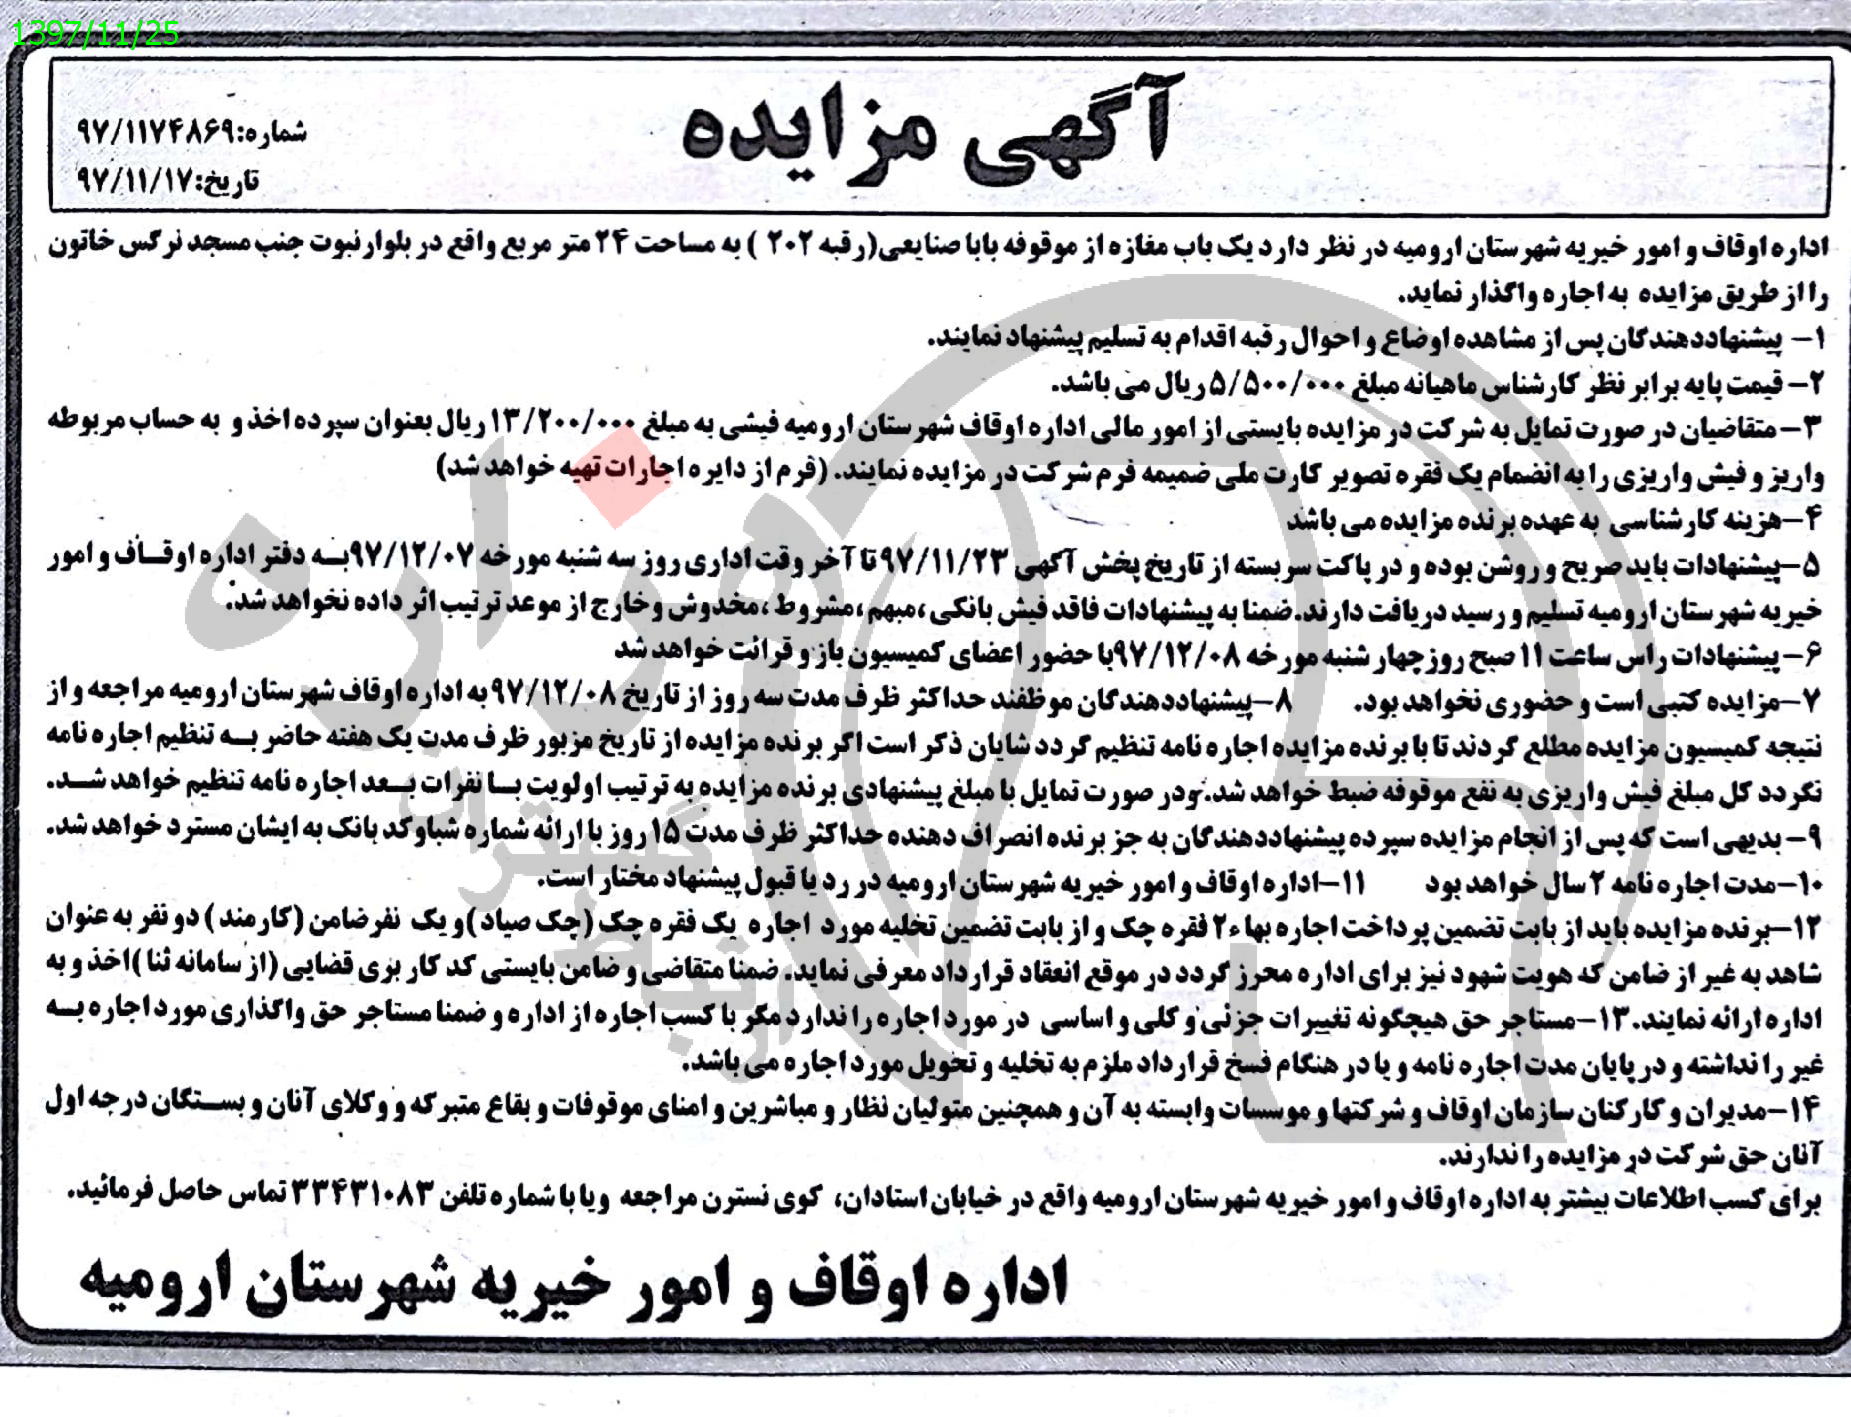 1397/11/25
آگهی مزایده
شماره:۹۷/۱۱۷۴۸۶۹
تاریخ:۹۷/۱۱/۱۷
اداره اوقاف و امور خیریه شهرستان ارومیه در نظر دارد یک باب مغازه از موقوفه بابا صنایعی(رقبه ۲۰۲ ) به مساحت ۲۴ متر مربع واقع در بلوار نبوت جنب مسجد نرگس خاتون
را از طریق مزایده به اجاره واگذار نماید.
۱- پیشنهاددهندگان پس از مشاهده اوضاع و احوال رقبه اقدام به تسلیم پیشنهاد نمایند.
۲- قیمت پایه برابر نظر کارشناس ماهیانه مبلغ ۵/۵۰۰/۰۰۰ ریال می باشد.
۳- متقاضیان در صورت تمایل به شرکت در مزایده بایستی از امور مالی اداره اوقاف شهرستان ارومیه فیشی به مبلغ ۱۳/۲۰۰/۰۰۰ ریال بعنوان سپرده اخذ و به حساب مربوطه
واریز و فیش واریزی را به انضمام یک فقره تصویر کارت ملی ضمیمه فرم شرکت در مزایده نمایند. (فرم از دایره اجارات تهیه خواهد شد)
۴-هزینه کارشناسی به عهده برنده مزایده می باشد
۵-پیشنهادات باید صریح و روشن بوده و در پاکت سربسته از تاریخ پخش آگهی ۹۷/۱۱/۲۳ تا آخر وقت اداری روز سه شنبه مورخه ۹۷/۱۲/۰۷ به دفتر اداره اوقاف و امور
خیریه شهرستان ارومیه تسلیم و رسید دریافت دارند.ضمنا به پیشنهادات فاقد فیش بانکی ،مبهم ،مشروط ،مخدوش و خارج از موعد ترتیب اثر داده نخواهد شد.
۶- پیشنهادات راس ساعت ۱۱ صبح روز چهار شنبه مورخه ۹۷/۱۲/۰۸ با حضور اعضای کمیسیون باز و قرائت خواهد شد
۷-مزایده کتبی است و حضوری نخواهد بود. ۸-پیشنهاددهندگان موظفند حداکثر ظرف مدت سه روز از تاریخ ۹۷/۱۲/۰۸ به اداره اوقاف شهرستان ارومیه مراجعه و از
نتیجه کمیسیون مزایده مطلع گردند تا با برنده مزایده اجاره نامه تنظیم گردد شایان ذکر است اگر برنده مزایده از تاریخ مزبور ظرف مدت یک هفته حاضر به تنظیم اجاره نامه
نگردد کل مبلغ فیش واریزی به نفع موقوفه ضبط خواهد شد. ودر صورت تمایل با مبلغ پیشنهادی برنده مزایده به ترتیب اولویت با نفرات بعد اجاره نامه تنظیم خواهد شد.
۹- بدیهی است که پس از انجام مزایده سپرده پیشنهاددهندگان به جز برنده انصراف دهنده حداکثر ظرف مدت ۱۵ روز با ارائه شماره شبا و کد بانک به ایشان مسترد خواهد شد.
۱۰-مدت اجاره نامه ۲ سال خواهد بود ۱۱-اداره اوقاف و امور خیریه شهرستان ارومیه در رد یا قبول پیشنهاد مختار است.
۱۲-برنده مزایده باید از بابت تضمین پرداخت اجاره بهاء ۲ فقره چک و از بابت تضمین تخلیه مورد اجاره یک فقره چک (چک صیاد )و یک نفر ضامن (کارمند ) دو نفر به عنوان
شاهد به غیر از ضامن که هویت شهود نیز برای اداره محرز گردد در موقع انعقاد قرارداد معرفی نماید. ضمنا متقاضی و ضامن بایستی کد کاربری قضایی (از سامانه ثنا )اخذ و به
اداره ارائه نمایند.۱۳-مستاجر حق هیچگونه تغییرات جزئی و کلی و اساسی در مورد اجاره را ندارد مگر با کسب اجاره از اداره و ضمنا مستاجر حق واگذاری مورد اجاره به
غیر را نداشته و در پایان مدت اجاره نامه و یا در هنگام فسخ قرارداد ملزم به تخلیه و تحویل مورد اجاره می باشد.
۱۴-مدیران و کارکنان سازمان اوقاف و شرکتها و موسسات وابسته به آن و همچنین متولیان نظار و مباشرین و امنای موقوفات و بقاع متبرکه و وکلای آنان و بستگان درجه اول
آنان حق شرکت در مزایده را ندارند.
برای کسب اطلاعات بیشتر به اداره اوقاف و امور خیریه شهرستان ارومیه واقع در خیابان استادان، کوی نسترن مراجعه ویا با شماره تلفن ۳۳۴۳۱۰۸۳ تماس حاصل فرمائید.
اداره اوقاف و امور خیریه شهرستان ارومیه